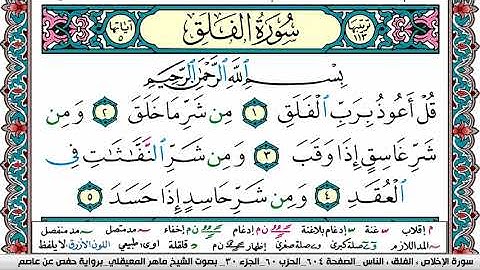 ترتيبها ١١٣
سُورَةُ الفَلَقِ
آياتها ٥
بِسْمِ اللَّهِ الرَّحْمَٰنِ الرَّحِيمِ
قُلْ أَعُوذُ بِرَبِّ الْفَلَقِ ١ مِن شَرِّ مَا خَلَقَ ٢ وَمِن
شَرِّ غَاسِقٍ إِذَا وَقَبَ ٣ وَمِن شَرِّ النَّفَّٰثَٰتِ فِى
الْعُقَدِ ٤ وَمِن شَرِّ حَاسِدٍ إِذَا حَسَدَ ٥
م إقلاب غنة إدغام بلاغنة إدغام إخفاء مد متصل مد منفصل
المد اللازم صلة كبرى صلة صغرى إظهار قلقلة اوى طبيعي اللون الأزرق لا يلفظ
سورة الإخلاص , الفلق , الناس _ الصفحة ٦٠٤_ الحزب ٦٠_ الجزء ٣٠ _ بصوت الشيخ ماهر المعيقلي_ برواية حفص عن عاصم